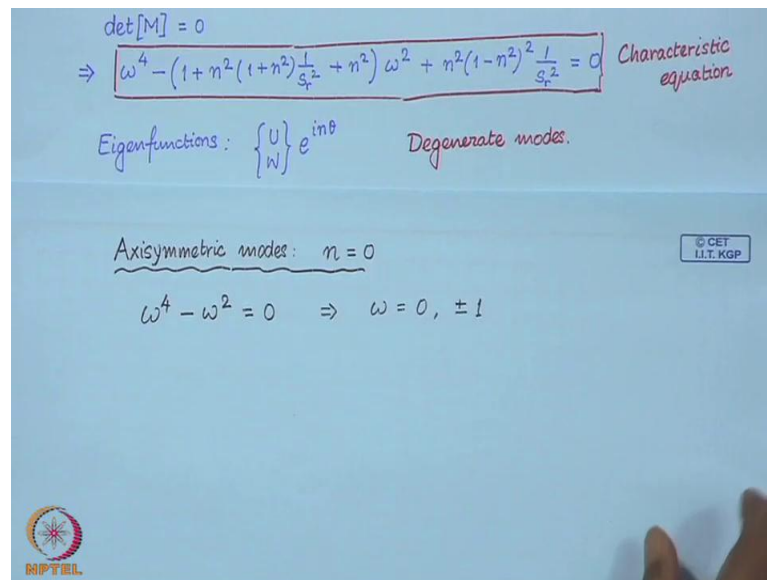 det[M] = 0
⇒ ω⁴ − (1 + n²(1+n²) 1/Sᵣ² + n²) ω² + n²(1−n²)² 1/Sᵣ² = 0 Characteristic equation
Eigenfunctions: {U W} e^{inθ} Degenerate modes.
Axisymmetric modes: n = 0
© CET
I.I.T. KGP
ω⁴ − ω² = 0 ⇒ ω = 0, ±1
NPTEL